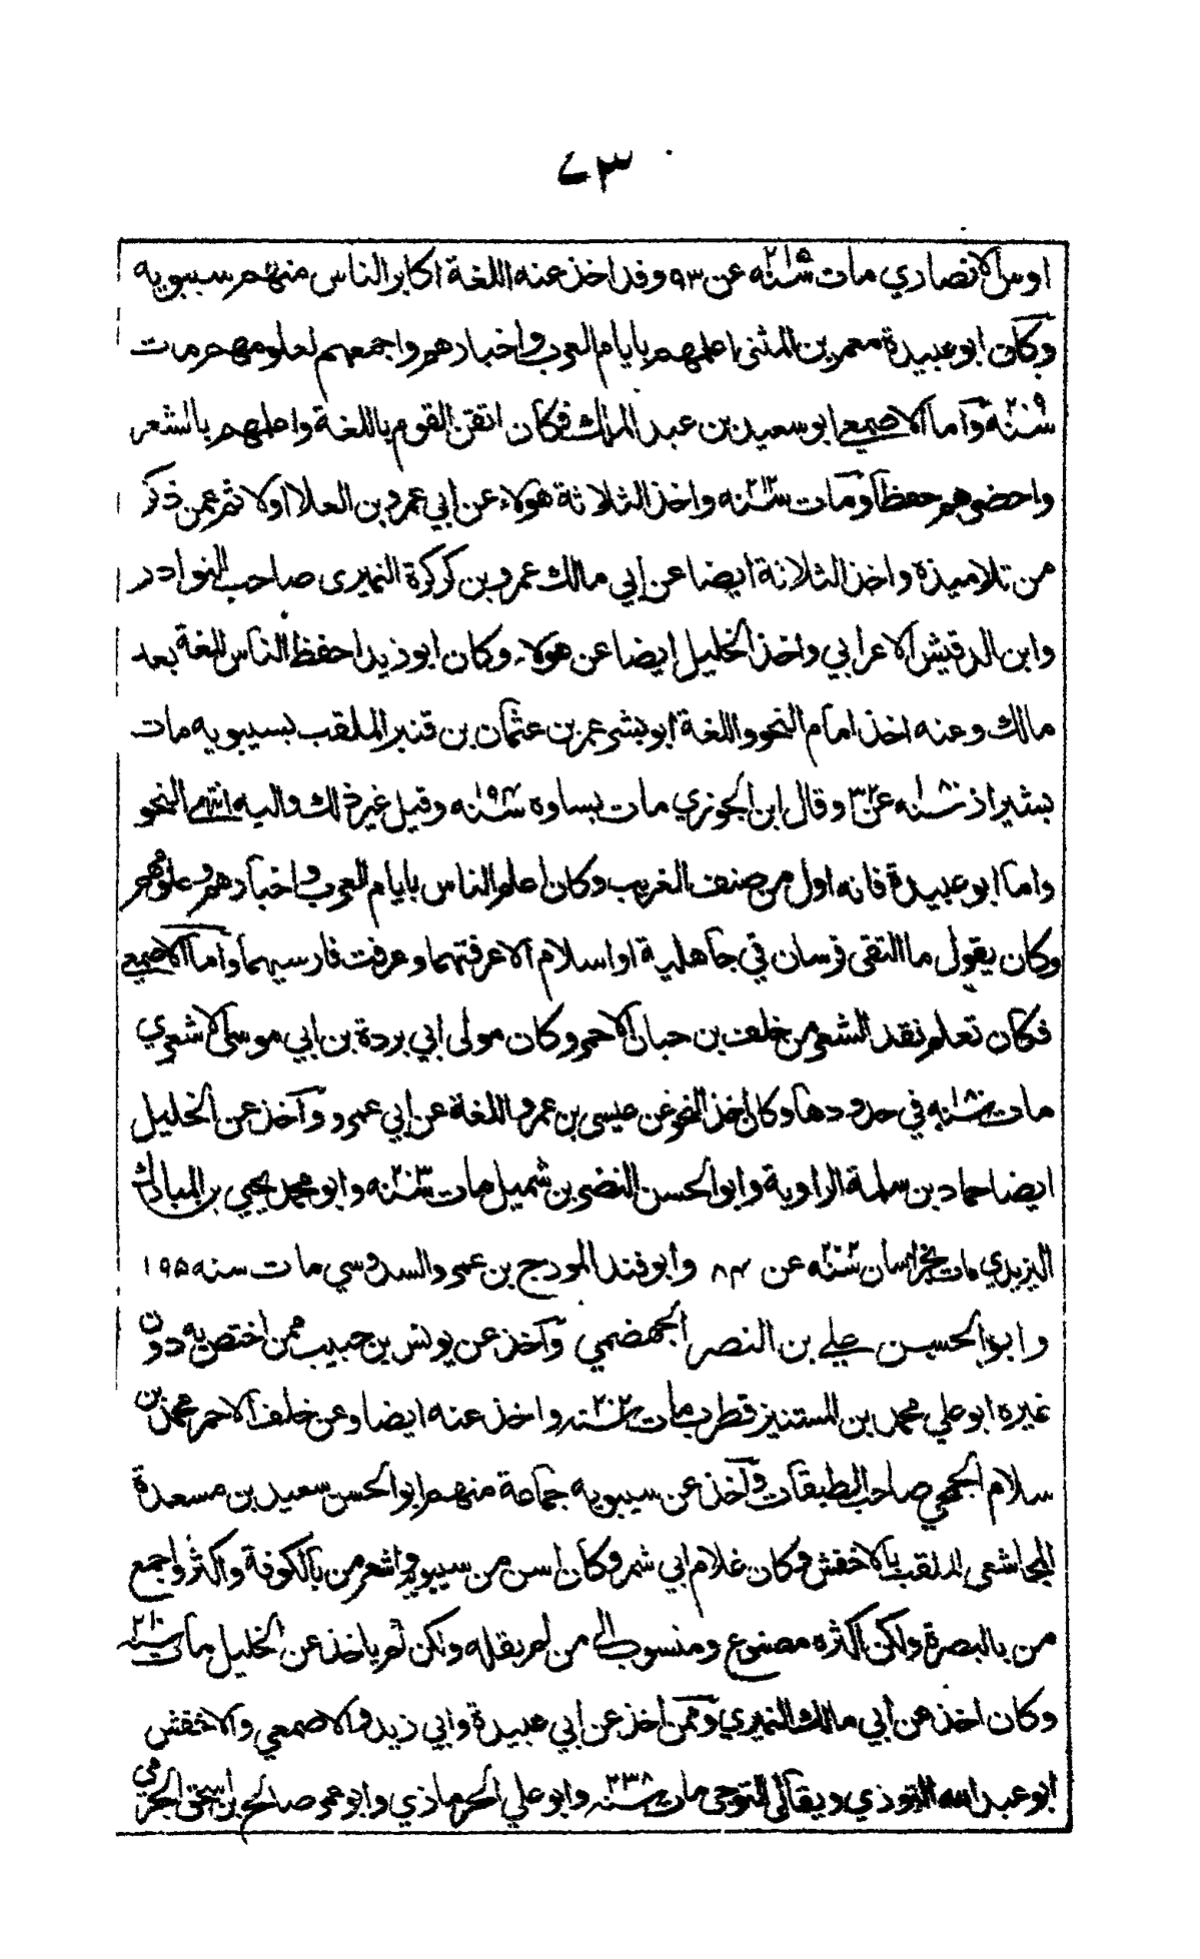 ٤٣
اوس الانصاري مات سنه ٢١٥ عن ٩٣ وقد اخذ عنه اللغة اكابر الناس منهم سيبويه
وكان ابو عبيدة معمر بن المثنى اعلمهم بايام العرب واخبارهم واجمعهم لعلومهم مات
سنة ٢٠٩ وأما الاصمعي ابو سعيد بن عبد الملك فكان اتقن القوم باللغة واعلمهم بالشعر
واحضرهم حفظا ومات سنه ٢١٣ واخذ الثلاثة هولاء عن ابي عمرو بن العلا اولا ثم عمن ذكر
من تلاميذه واخذ الثلاثة ايضا عن ابي مالك عمرو بن كركرة النميرى صاحب النوادر
وابن الدقيش الاعرابي واخذ الخليل ايضا عن هولاء وكان ابو زيد احفظ الناس للغة بعد
مالك وعنه اخذ امام النحو واللغة ابو بشر عمر بن عثمان بن قنبر الملقب بسيبويه مات
بشيراز سنه ١٨٠ عن ٣٢ وقال ابن الجوزي مات بساوه سنه ١٩٤ وقيل غير ذلك واليه انتهى النحو
واما ابو عبيدة فانه اول من صنف الغريب وكان اعلم الناس بايام العرب واخبارهم وعلومهم
وكان يقول ما التقى فرسان في جاهلية او اسلام الا عرفتهما وعرفت فارسيهما وأما الاصمعي
فكان تعلم نقد الشعر من خلف بن حبان الاحمر وكان مولى ابي بردة بن ابي موسى الاشعري
مات سنه ١٨٠ في حدودها وكان اخذ النحو عن عيسى بن عمرو اللغة عن ابي عمرو وآخذ عن الخليل
ايضا حماد بن سلمة الراوية وابو الحسن النضر بن شميل مات سنه ٢٠٣ وابو محمد يحيي بن المبارك
اليزيدي مات بخراسان سنه ٢٠٢ عن ٨٤ وابو فند المورج بن عمرو السدوسي مات سنه ١٩٥
وابو الحسين علي بن النصر الجهضمي وآخذ عن يونس بن حبيب ممن اختص به دون
غيره ابو علي محمد بن المستنيز قطرب مات سنه ٢٠٢ واخذ عنه ايضا وعن خلف الاحمر محمد بن
سلام الجمحي صاحب الطبقات وآخذ عن سيبويه جماعة منهم ابو الحسن سعيد بن مسعدة
المجاشعى الملقب بالاخفش وكان غلام ابي شمر وكان اسن من سيبويه واشعر من بالكوفة واكثر واجمع
من بالبصرة ولكن اكثره مصنوع ومنسوب الى من لم يقله ولكن لم ياخذ عن الخليل مات سنه ٢١٠
وكان اخذ عن ابي مالك النميري وممن اخذ عن ابي عبيدة وابي زيد والاصمعي والاخفش
ابو عبد الله التوزي ويقال التوجى مات سنه ٢٣٨ وابو علي الحرمازي وابو عمر صالح بن اسحق الجرمي